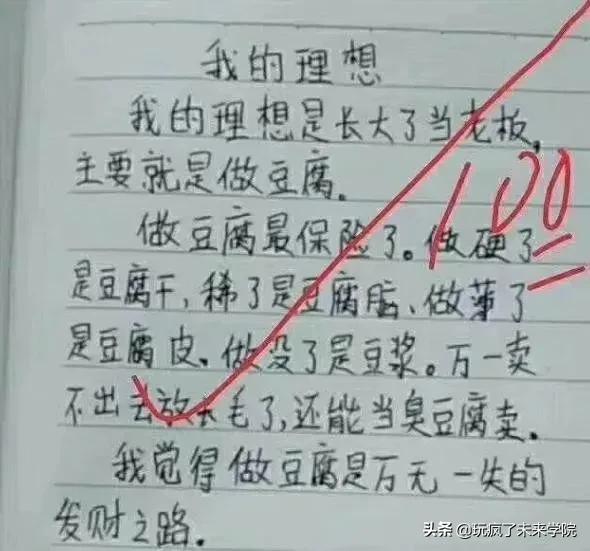 我的理想
我的理想是长大了当老板，
主要就是做豆腐。
做豆腐最保险了。做硬了
100
是豆腐干，稀了是豆腐脑、做薄了
是豆腐皮、做没了是豆浆。万一卖
不出去放长毛了，还能当臭豆腐卖。
我觉得做豆腐是万无一失的
发财之路。
头条@玩疯了未来学院